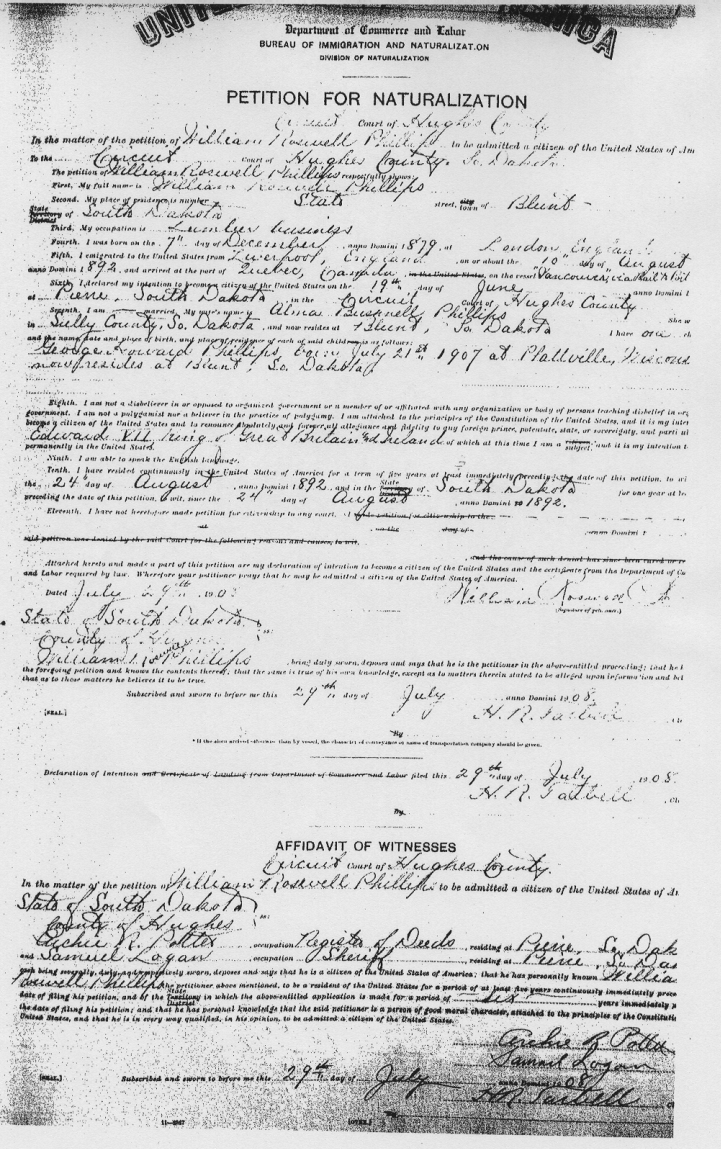 UNITED AMERICA
Department of Commerce and Labor
BUREAU OF IMMIGRATION AND NATURALIZATION
DIVISION OF NATURALIZATION
PETITION FOR NATURALIZATION
Circuit Court of Hughes County
In the matter of the petition of William Roswell Phillips to be admitted a citizen of the United States of Am
To the Circuit Court of Hughes County, So. Dakota
The petition of William Roswell Phillips respectfully shows:
First, My full name is William Roswell Phillips
Second, My place of residence is number State street, city town of Blunt
State Territory District of South Dakota
Third, My occupation is Lumber business
Fourth, I was born on the 7th day of December, anno Domini 1879, at London, England
Fifth, I emigrated to the United States from Liverpool, England on or about the 10th day of August
anno Domini 1892, and arrived at the port of Quebec, Canada in the United States, on the vessel "Vancouver" via
Sixth, I declared my intention to become a citizen of the United States on the 19th day of June anno Domini 1
at Pierre, South Dakota in the Circuit Court of Hughes County
Seventh, I am married. My wife's name is Alma Bushnell Phillips She w
in Sully County, So. Dakota, and now resides at Blunt, So. Dakota I have one ch
and the name, date and place of birth, and place of residence of each of said children is as follows:
George Howard Phillips, born July 21st, 1907 at Plattville, Wiscons
now resides at Blunt, So. Dakota
Eighth, I am not a disbeliever in or opposed to organized government or a member of or affiliated with any organization or body of persons teaching disbelief in org
government. I am not a polygamist nor a believer in the practice of polygamy. I am attached to the principles of the Constitution of the United States, and it is my inter
become a citizen of the United States and to renounce absolutely and forever all allegiance and fidelity to any foreign prince, potentate, state, or sovereignty, and parti ul
Edward VII King of Great Britain and Ireland of which at this time I am a subject, and it is my intention t
permanently in the United States.
Ninth, I am able to speak the English language.
Tenth, I have resided continuously in the United States of America for a term of five years at least immediately preceding the date of this petition, to wi
the 24th day of August anno Domini 1892, and in the State Territory District of South Dakota for one year at le
preceding the date of this petition, to wit, since the 24th day of August, anno Domini 1892.
Eleventh, I have not heretofore made petition for citizenship to any court. I made petition for citizenship to the
at on the day of anno Domini 1
said petition was denied by the said Court for the following reasons and causes, to wit,
and the cause of such denial has since been cured or re
Attached hereto and made a part of this petition are my declaration of intention to become a citizen of the United States and the certificate from the Department of Co
and Labor required by law. Wherefore your petitioner prays that he may be admitted a citizen of the United States of America.
Dated July 29th, 1908 William Roswell Ph
(Signature of petitioner.)
State of South Dakota
County of Hughes ss:
William Roswell Phillips, being duly sworn, deposes and says that he is the petitioner in the above-entitled proceeding; that he h
the foregoing petition and knows the contents thereof; that the same is true of his own knowledge, except as to matters therein stated to be alleged upon information and bel
that as to those matters he believes it to be true.
Subscribed and sworn to before me this 29th day of July anno Domini 1908.
[SEAL.] H. R. Tarbell, Cl
By
* If the alien arrived otherwise than by vessel, the character of conveyance or name of transportation company should be given.
Declaration of Intention and Certificate of Landing from Department of Commerce and Labor filed this 29th day of July 1908.
H. R. Tarbell, Cl
By
AFFIDAVIT OF WITNESSES
Circuit Court of Hughes County.
In the matter of the petition of William Roswell Phillips to be admitted a citizen of the United States of A
State of South Dakota
County of Hughes ss:
Archie R. Potter occupation Register of Deeds, residing at Pierre, So. Dak
and Samuel Logan, occupation Sheriff, residing at Pierre, So Dak
each being severally, duly, and respectively sworn, deposes and says that he is a citizen of the United States of America; that he has personally known Willia
Roswell Phillips, the petitioner above mentioned, to be a resident of the United States for a period of at least five years continuously immediately prece
date of filing his petition, and of the State Territory District in which the above-entitled application is made for a period of six years immediately p
the date of filing his petition; and that he has personal knowledge that the said petitioner is a person of good moral character, attached to the principles of the Constitutio
United States, and that he is in every way qualified, in his opinion, to be admitted a citizen of the United States.
Archie R Potter
Samuel Logan
[SEAL.] Subscribed and sworn to before me this 29th day of July anno Domini 1908
H. R. Tarbell Cl
[OVER.]